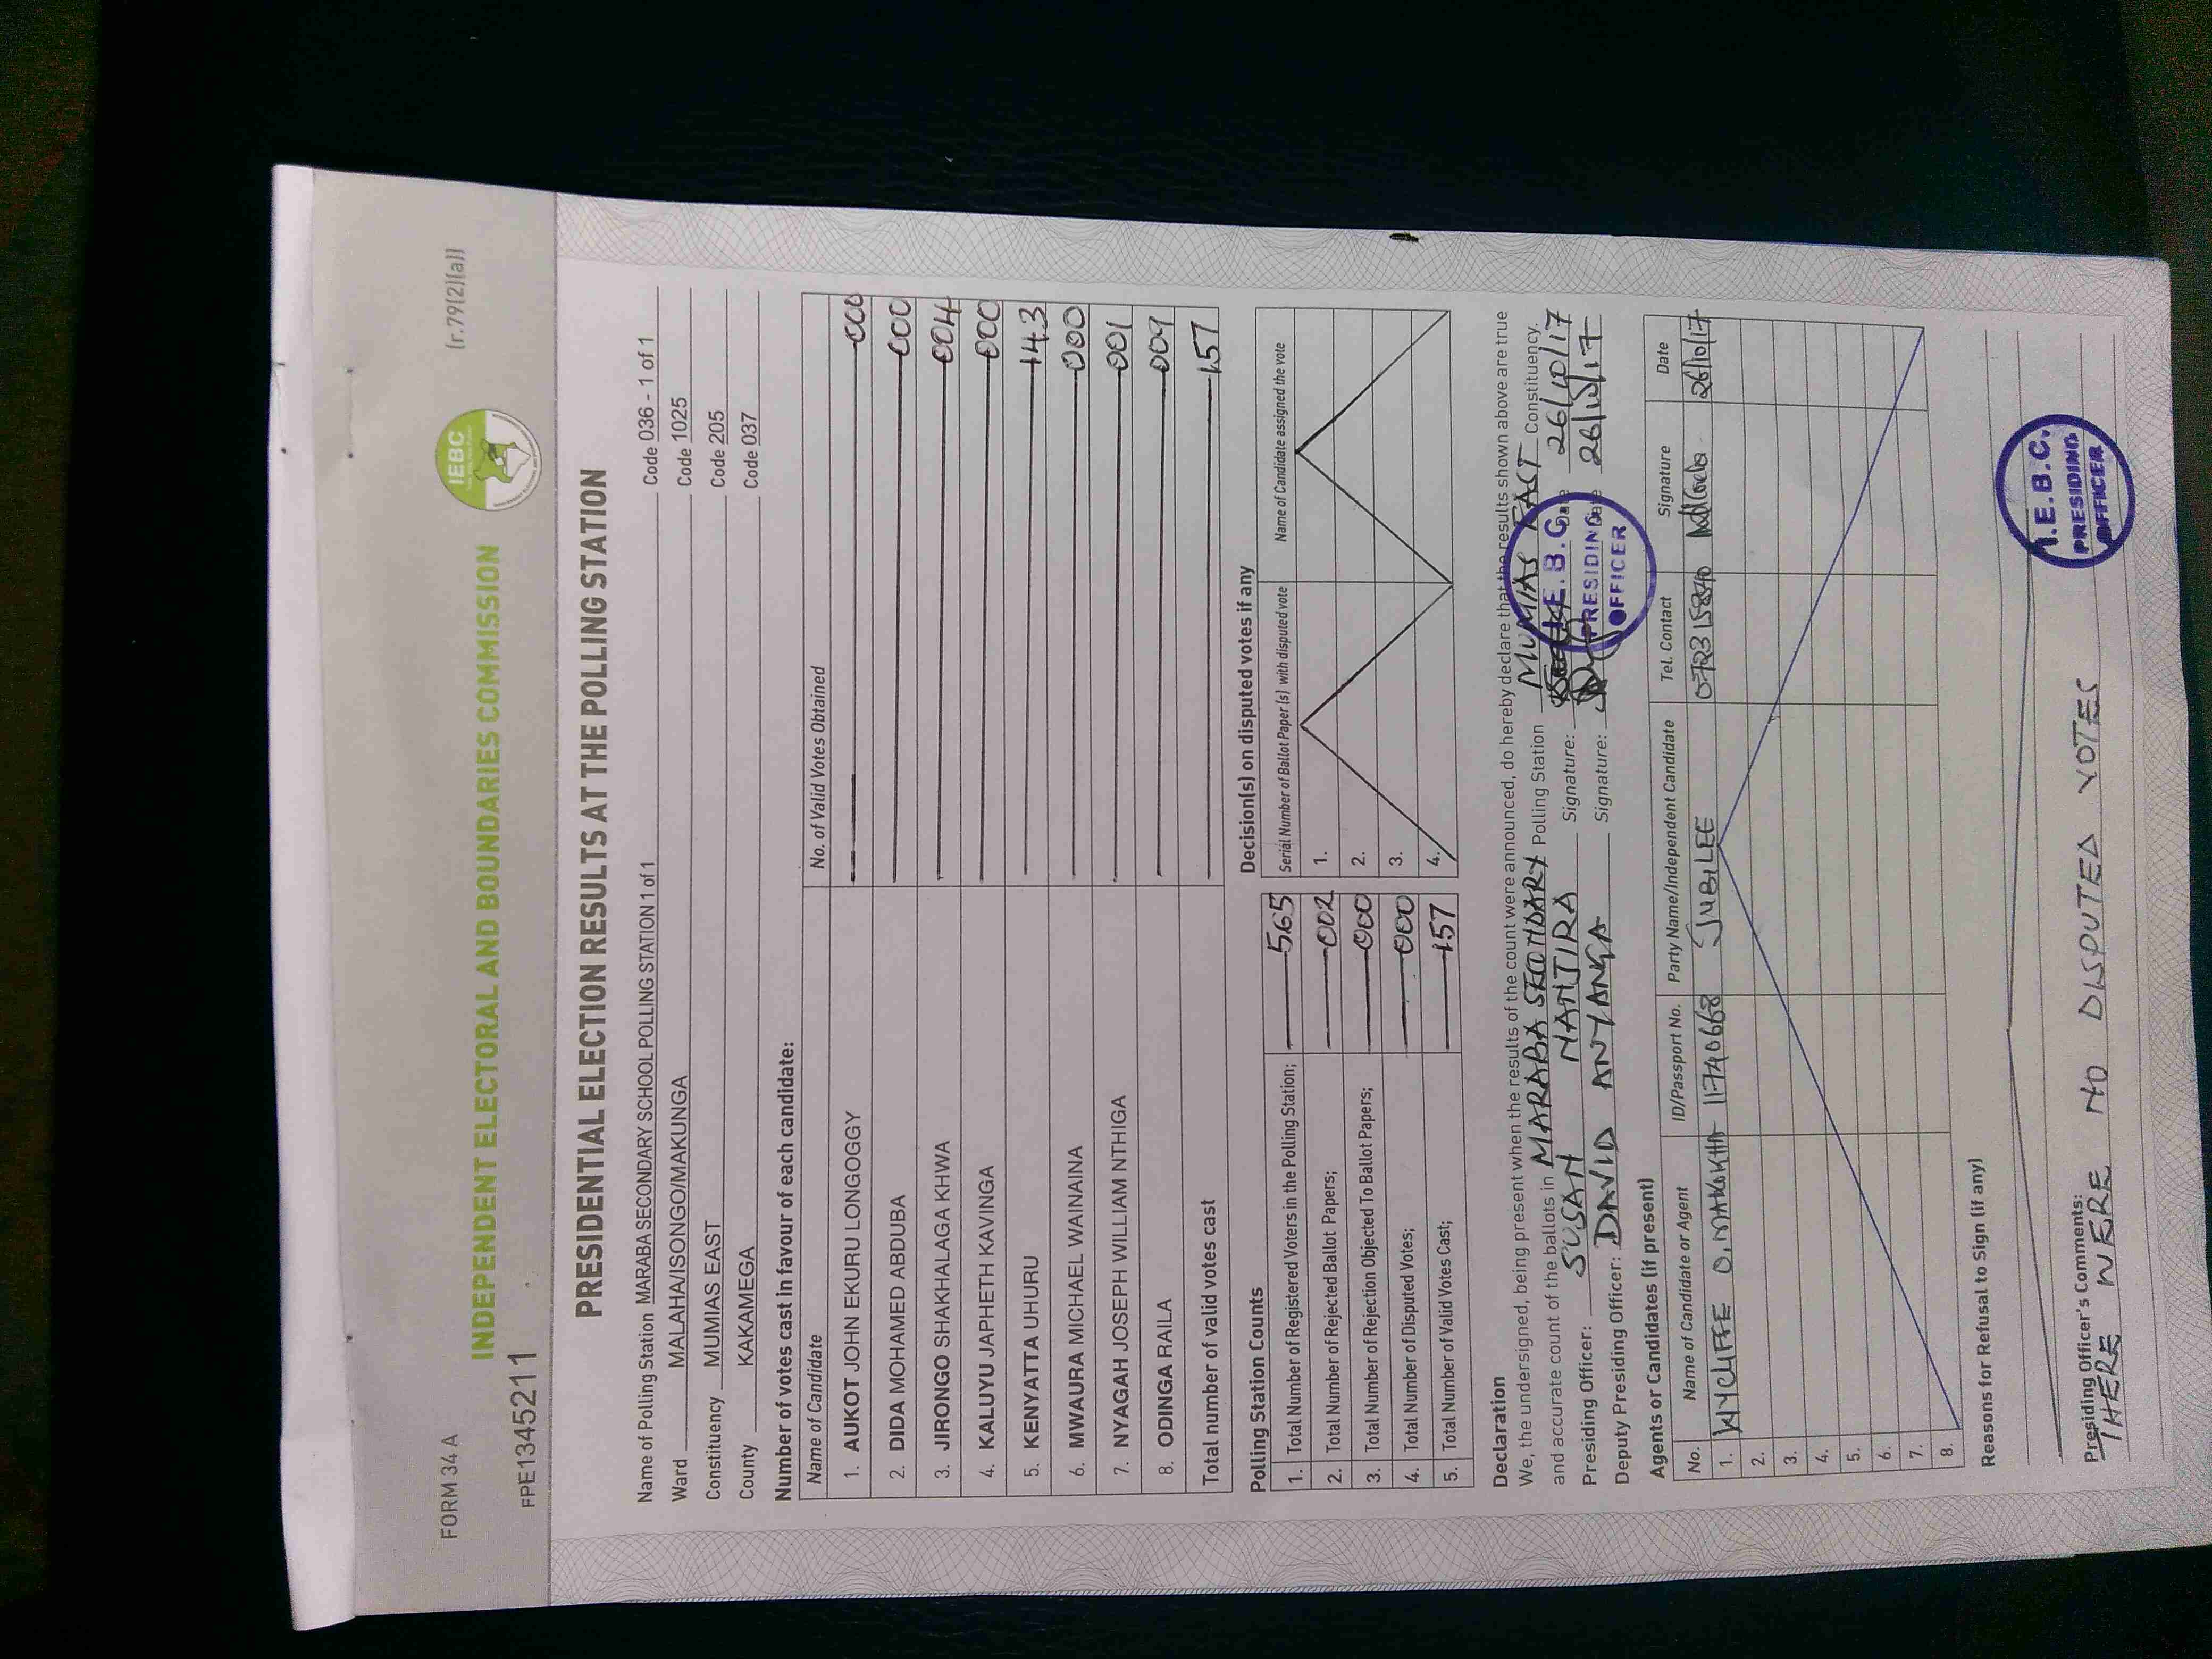 FORM 34 A
(r.79(2)(a))
IEBC
INDEPENDENT ELECTORAL AND BOUNDARIES COMMISSION
FPE1345211
PRESIDENTIAL ELECTION RESULTS AT THE POLLING STATION
Name of Polling Station MARABA SECONDARY SCHOOL POLLING STATION 1 of 1 Code 036 - 1 of 1
Ward MALAHA/ISONGO/MAKUNGA Code 1025
Constituency MUMIAS EAST Code 205
County KAKAMEGA Code 037
Number of votes cast in favour of each candidate:
Name of Candidate No. of Valid Votes Obtained
1. AUKOT JOHN EKURU LONGOGGY 000
2. DIDA MOHAMED ABDUBA 000
3. JIRONGO SHAKHALAGA KHWA 004
4. KALUYU JAPHETH KAVINGA 000
5. KENYATTA UHURU 143
6. MWAURA MICHAEL WAINAINA 000
7. NYAGAH JOSEPH WILLIAM NTHIGA 001
8. ODINGA RAILA 009
Total number of valid votes cast 157
Polling Station Counts
1. Total Number of Registered Voters in the Polling Station; 565
2. Total Number of Rejected Ballot Papers; 002
3. Total Number of Rejection Objected To Ballot Papers; 000
4. Total Number of Disputed Votes; 000
5. Total Number of Valid Votes Cast; 157
Decision(s) on disputed votes if any
Serial Number of Ballot Paper (s) with disputed vote Name of Candidate assigned the vote
1.
2.
3.
4.
Declaration
We, the undersigned, being present when the results of the count were announced, do hereby declare that the results shown above are true
and accurate count of the ballots in MARABA SECONDARY Polling Station MUMIAS EAST Constituency.
Presiding Officer: SUSAN NANJIRA Signature: Date 26/10/17
Deputy Presiding Officer: DAVID ANYANGA Signature: Date 26/10/17
I.E.B.C.
PRESIDING
OFFICER
Agents or Candidates (if present)
No. Name of Candidate or Agent ID/Passport No. Party Name/Independent Candidate Tel. Contact Signature Date
1. WYCLIFFE O. MAKOKHA 11740668 JUBILEE 0723115840 26/10/17
2.
3.
4.
5.
6.
7.
8.
Reasons for Refusal to Sign (if any)
Presiding Officer's Comments:
THERE WERE NO DISPUTED VOTES
I.E.B.C.
PRESIDING
OFFICER